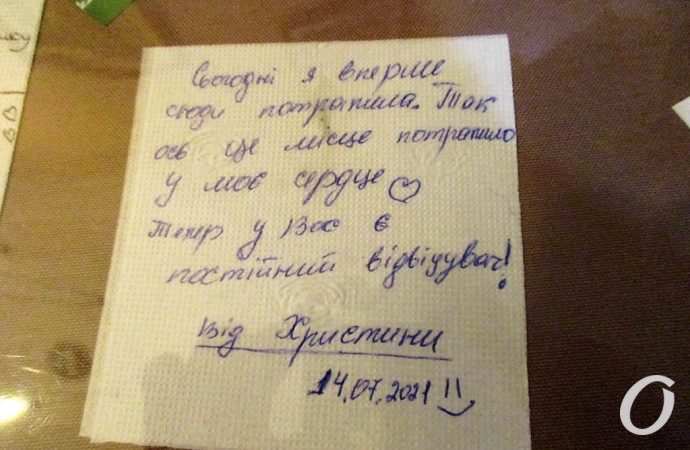 Сьогодні я вперше
сюди потрапила. Так
ось це місце потрапило
у моє сердце ♡
Тепер у Вас є
постійний відвідувач!
Від Христини
14.07.2021